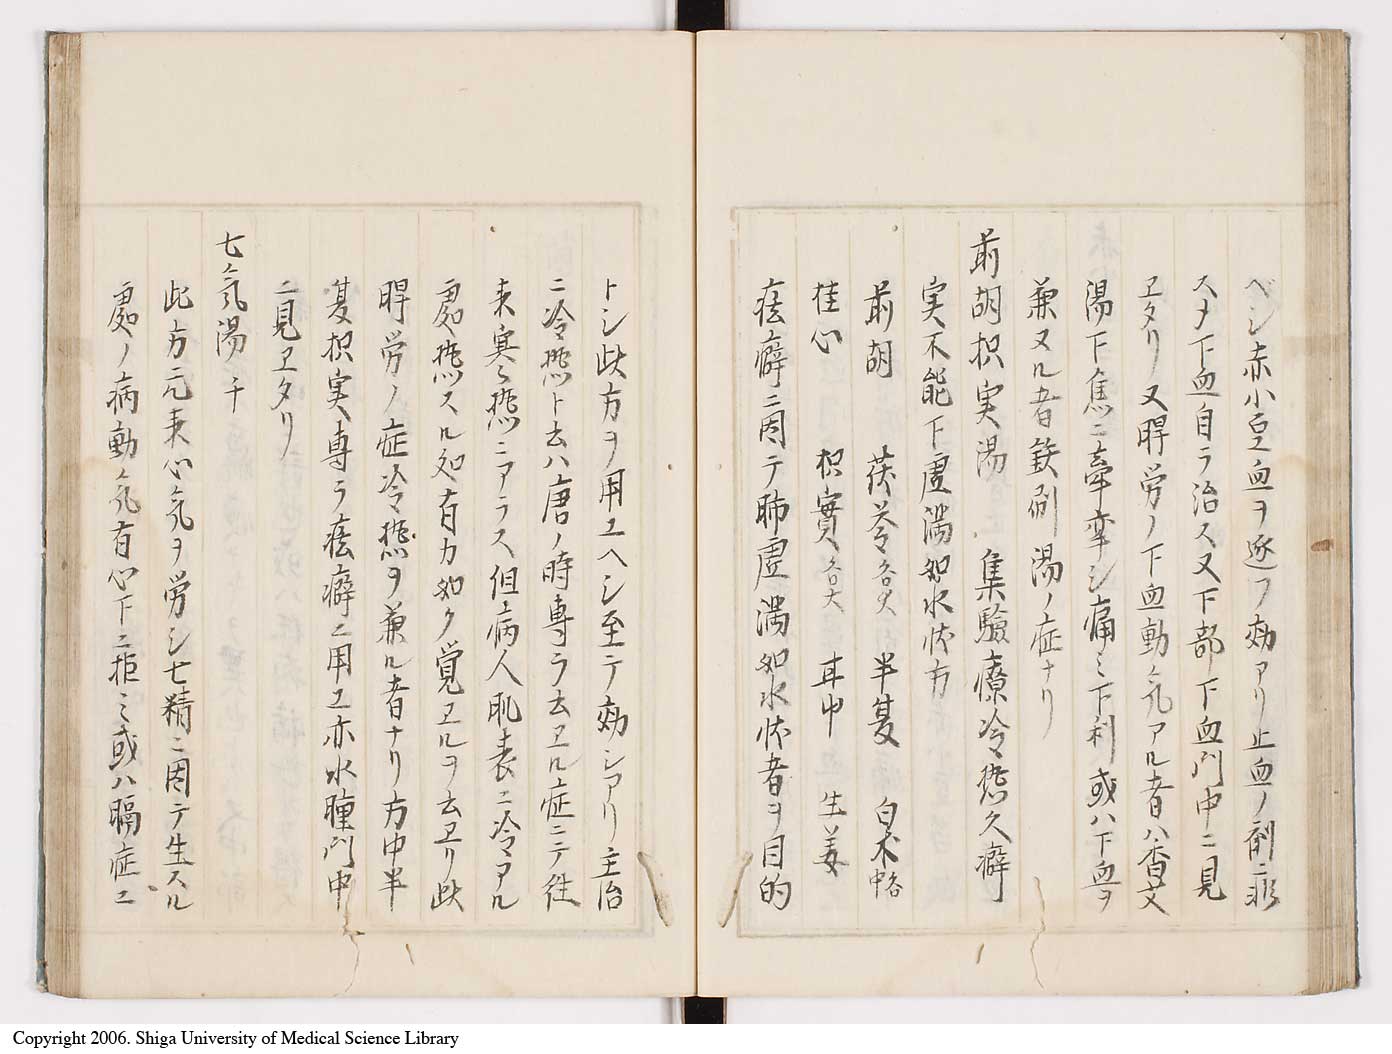 ベシ赤小豆血ヲ逐フ効アリ止血ノ剤ニ非
スメ下血自ラ治ス又下部下血門中ニ見
ヱタリ又脾労ノ下血動気アル者ハ香艾
湯下焦ニ牽牽シ痛ミ下利或ハ下血ヲ
兼ヌル者鉄刷湯ノ症ナリ
前胡枳実湯 集驗療冷㷔久癖
実不能下虚満如水状方
前胡 茯苓各四 半夏 白朮略中
桂心 枳實各六 甘中 生姜
痃癖ニ因テ肺虚満如水状者ヲ目的
トシ此方ヲ用ユヘシ至テ効シアリ主治
ニ冷熱ト云ハ唐ノ時専ラ云ヱル症ニテ往
来寒熱ニアラス但病人肌表ニ冷アル
処熱スル処有カ如ク覚ヱルヲ云ヱリ此
脾労ノ症冷熱ヲ兼ル者ナリ方中半
夏枳実専ラ痃癖ニ用ヱ亦水腫門中
ニ見ヱタリ
七気湯 千
此方元来心気ヲ労シ七精ニ因テ生スル
処ノ病動気有心下ニ拒ミ或ハ膈症ニ
Copyright 2006. Shiga University of Medical Science Library